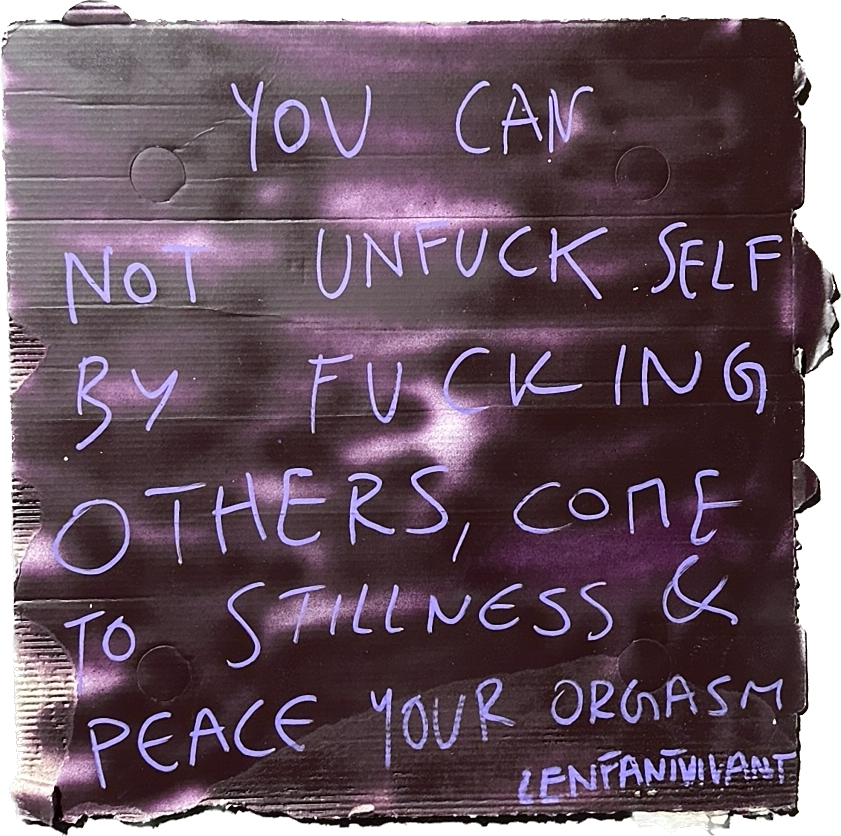 YOU CAN
NOT UNFUCK SELF
BY FUCKING
OTHERS, COME
TO STILLNESS &
PEACE YOUR ORGASM
LENFANTVIVANT